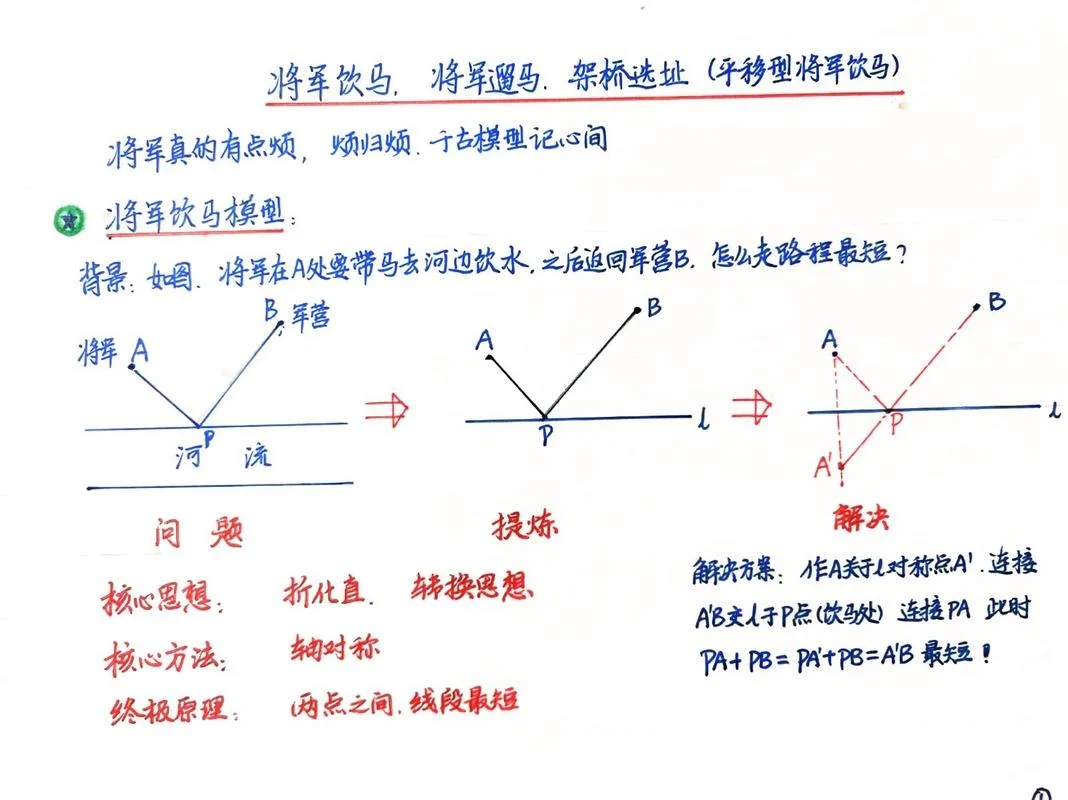 将军饮马. 将军遛马. 架桥选址 (平移型将军饮马)
将军真的有点烦, 烦归烦. 千古模型记心间
将军饮马模型:
背景: 如图. 将军在A处要带马去河边饮水, 之后返回军营B. 怎么走路程最短?
将军 A B 军营 P 河 流
A B P l
A B P A' l
问 题 提炼 解决
核心思想: 折化直. 转换思想
核心方法: 轴对称
终极原理: 两点之间. 线段最短
解决方案: 作A关于l对称点A'. 连接
A'B交l于P点(饮马处) 连接PA 此时
PA+PB=PA'+PB=A'B 最短!
①